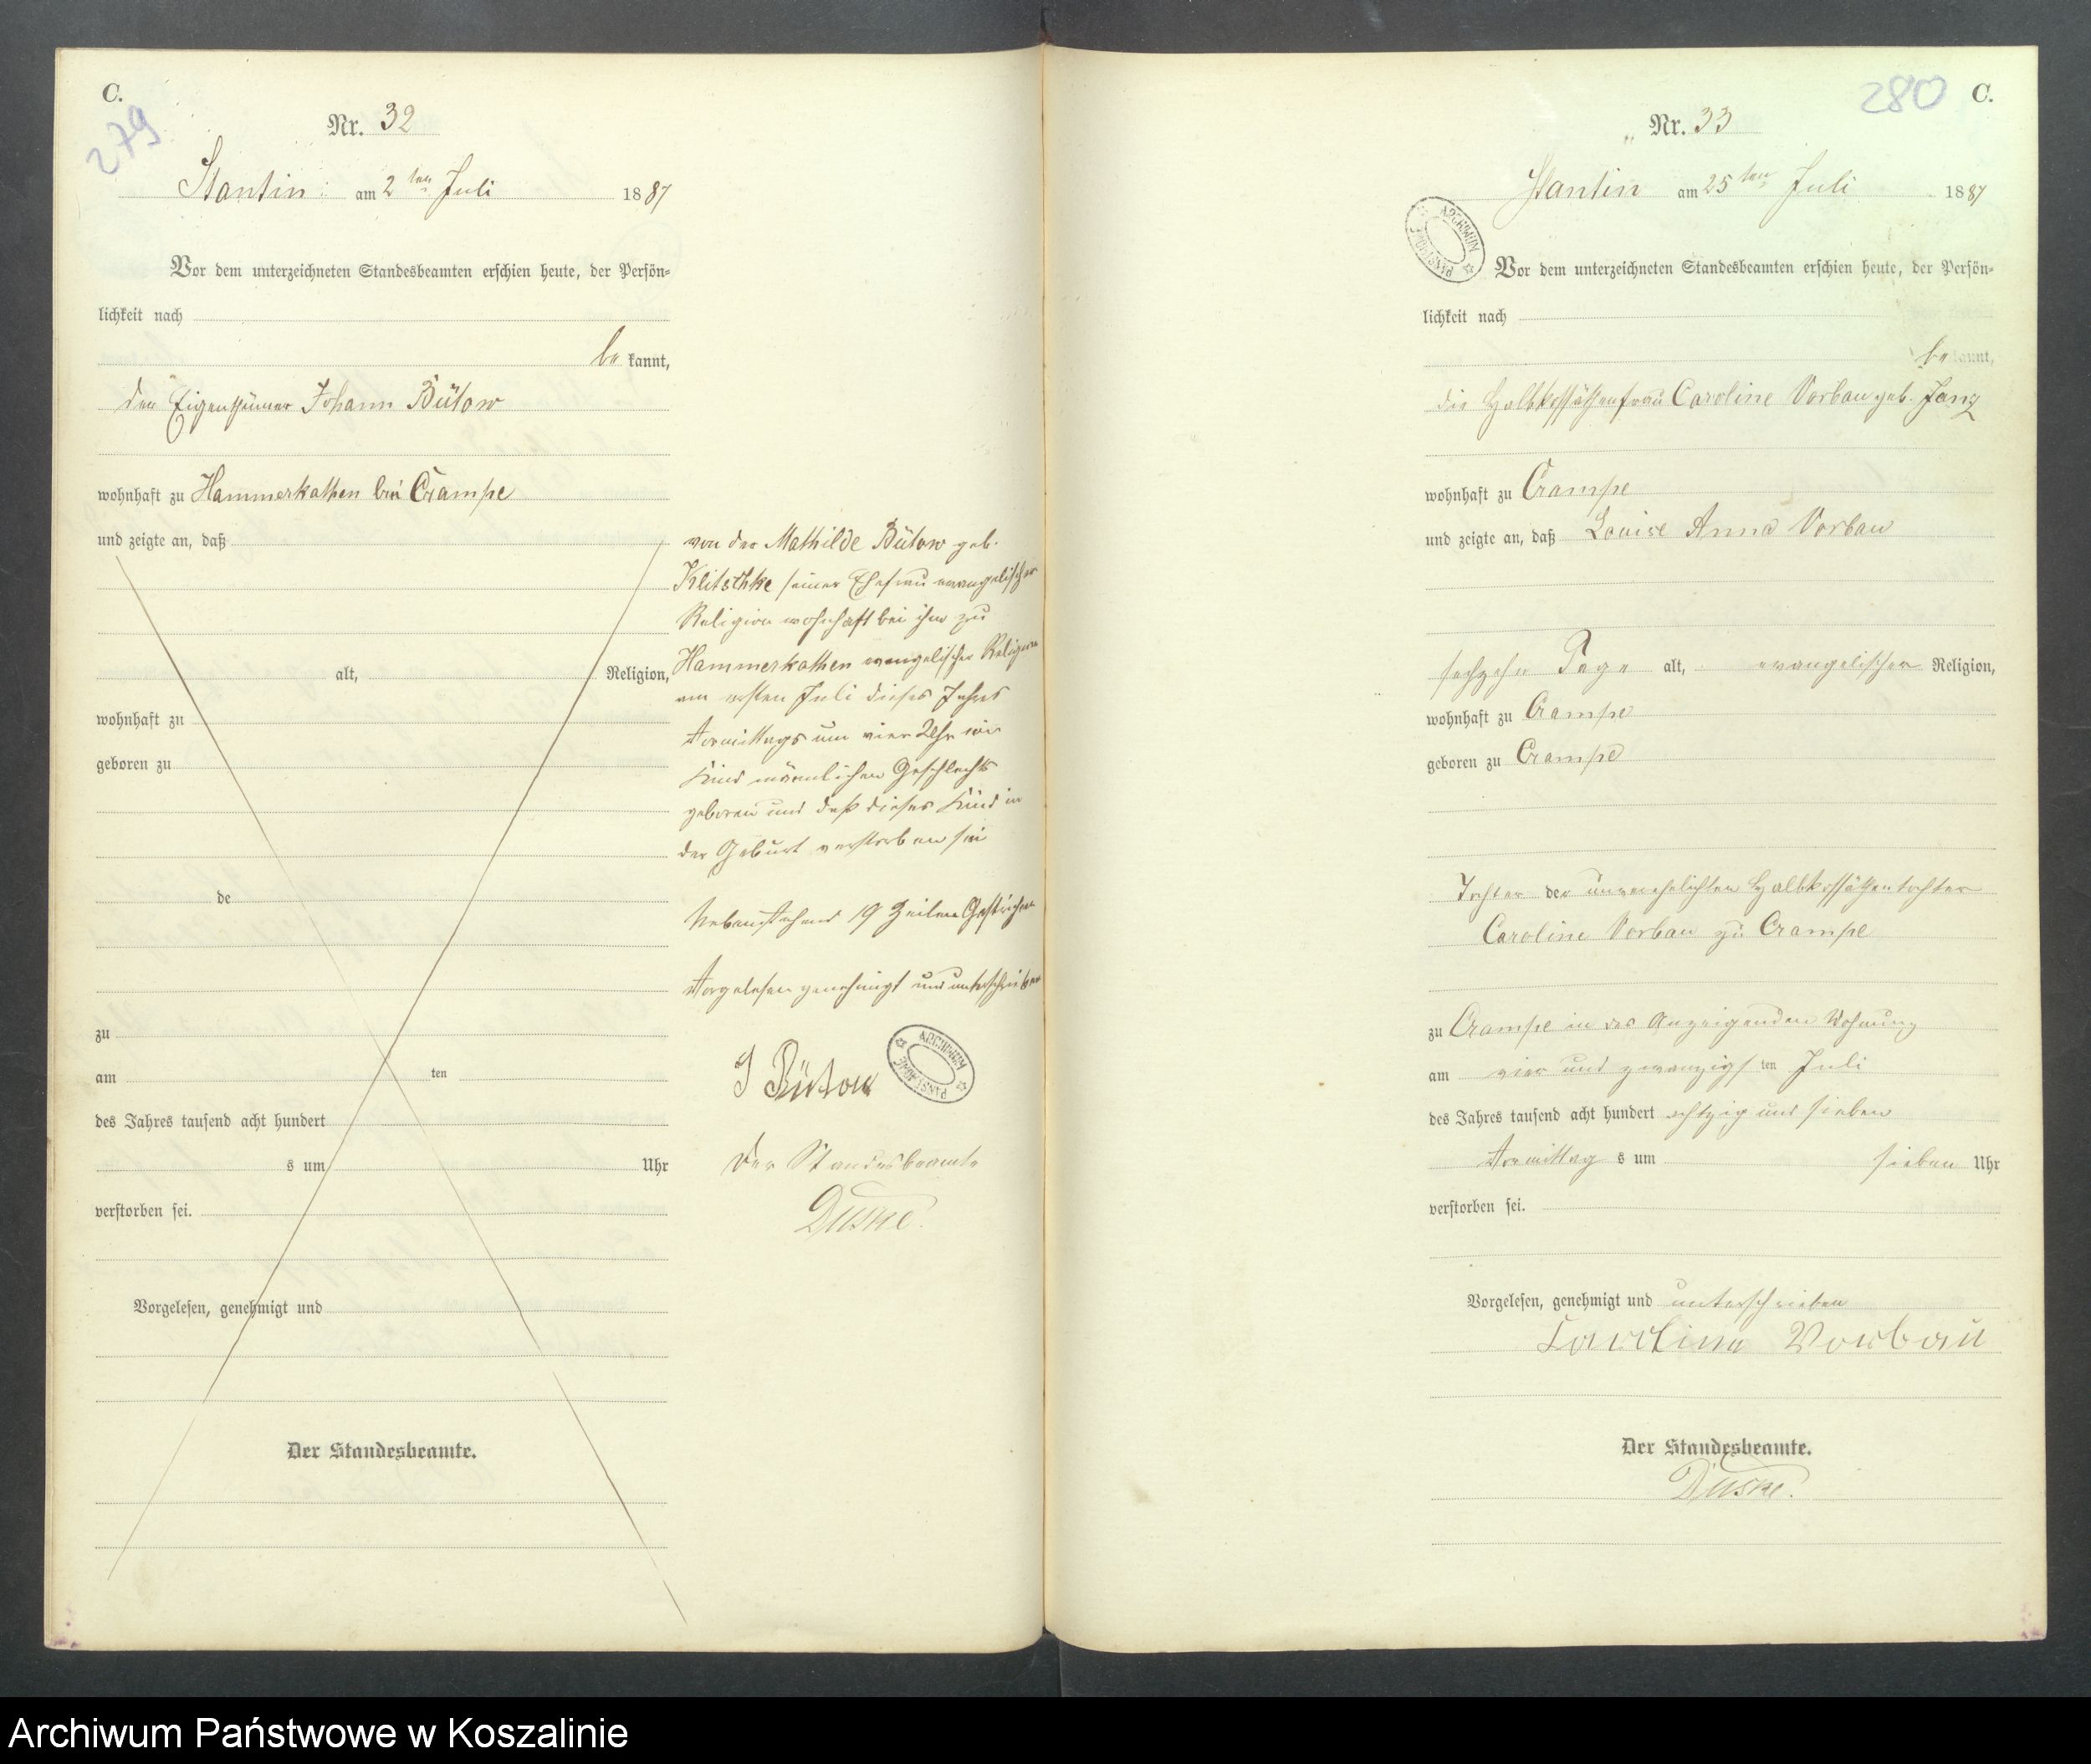 C.
279
Nr. 32
Stantin am 2ten Juli 1887
Vor dem unterzeichneten Standesbeamten erschien heute, der Persön-
lichkeit nach
be kannt,
der Eigenthümer Johann Bütow
wohnhaft zu Hammerkathen bei Crampe
und zeigte an, daß
alt, Religion,
wohnhaft zu
geboren zu
de
zu
am ten
des Jahres tausend acht hundert
s um Uhr
verstorben sei.
Vorgelesen, genehmigt und
Der Standesbeamte.
von der Mathilde Bütow geb.
Klitschke seiner Ehefrau evangelischer
Religion wohnhaft bei ihm zu
Hammerkathen evangelischer Religion
am ersten Juli dieses Jahres
Vormittags um vier Uhr ein
Kind männlichen Geschlechts
geboren und daß dieses Kind in
der Geburt verstorben sei
Nebenstehend 19 Zeilen Gestrichen
Vorgelesen genehmigt und unterschrieben
J Bütow
ARCHIWUM PAŃSTWOWE
Der Standesbeamte
Duske.
280
C.
Nr. 33
Stantin am 25ten Juli 1887
ARCHIWUM PAŃSTWOWE
Vor dem unterzeichneten Standesbeamten erschien heute, der Persön-
lichkeit nach
be kannt,
die Halbkossäthenfrau Caroline Vorbau geb. Janz
wohnhaft zu Crampe
und zeigte an, daß Louise Anna Vorbau
sechzehn Tage alt, evangelischer Religion,
wohnhaft zu Crampe
geboren zu Crampe
Tochter der unverehelichten Halbkossäthentochter
Caroline Vorbau zu Crampe
zu Crampe in der Anzeigenden Wohnung
am vier und zwanzigs ten Juli
des Jahres tausend acht hundert achtzig und sieben
Vormittag s um sieben Uhr
verstorben sei.
Vorgelesen, genehmigt und unterschrieben
Caroline Vorbau
Der Standesbeamte.
Duske.
Archiwum Państwowe w Koszalinie